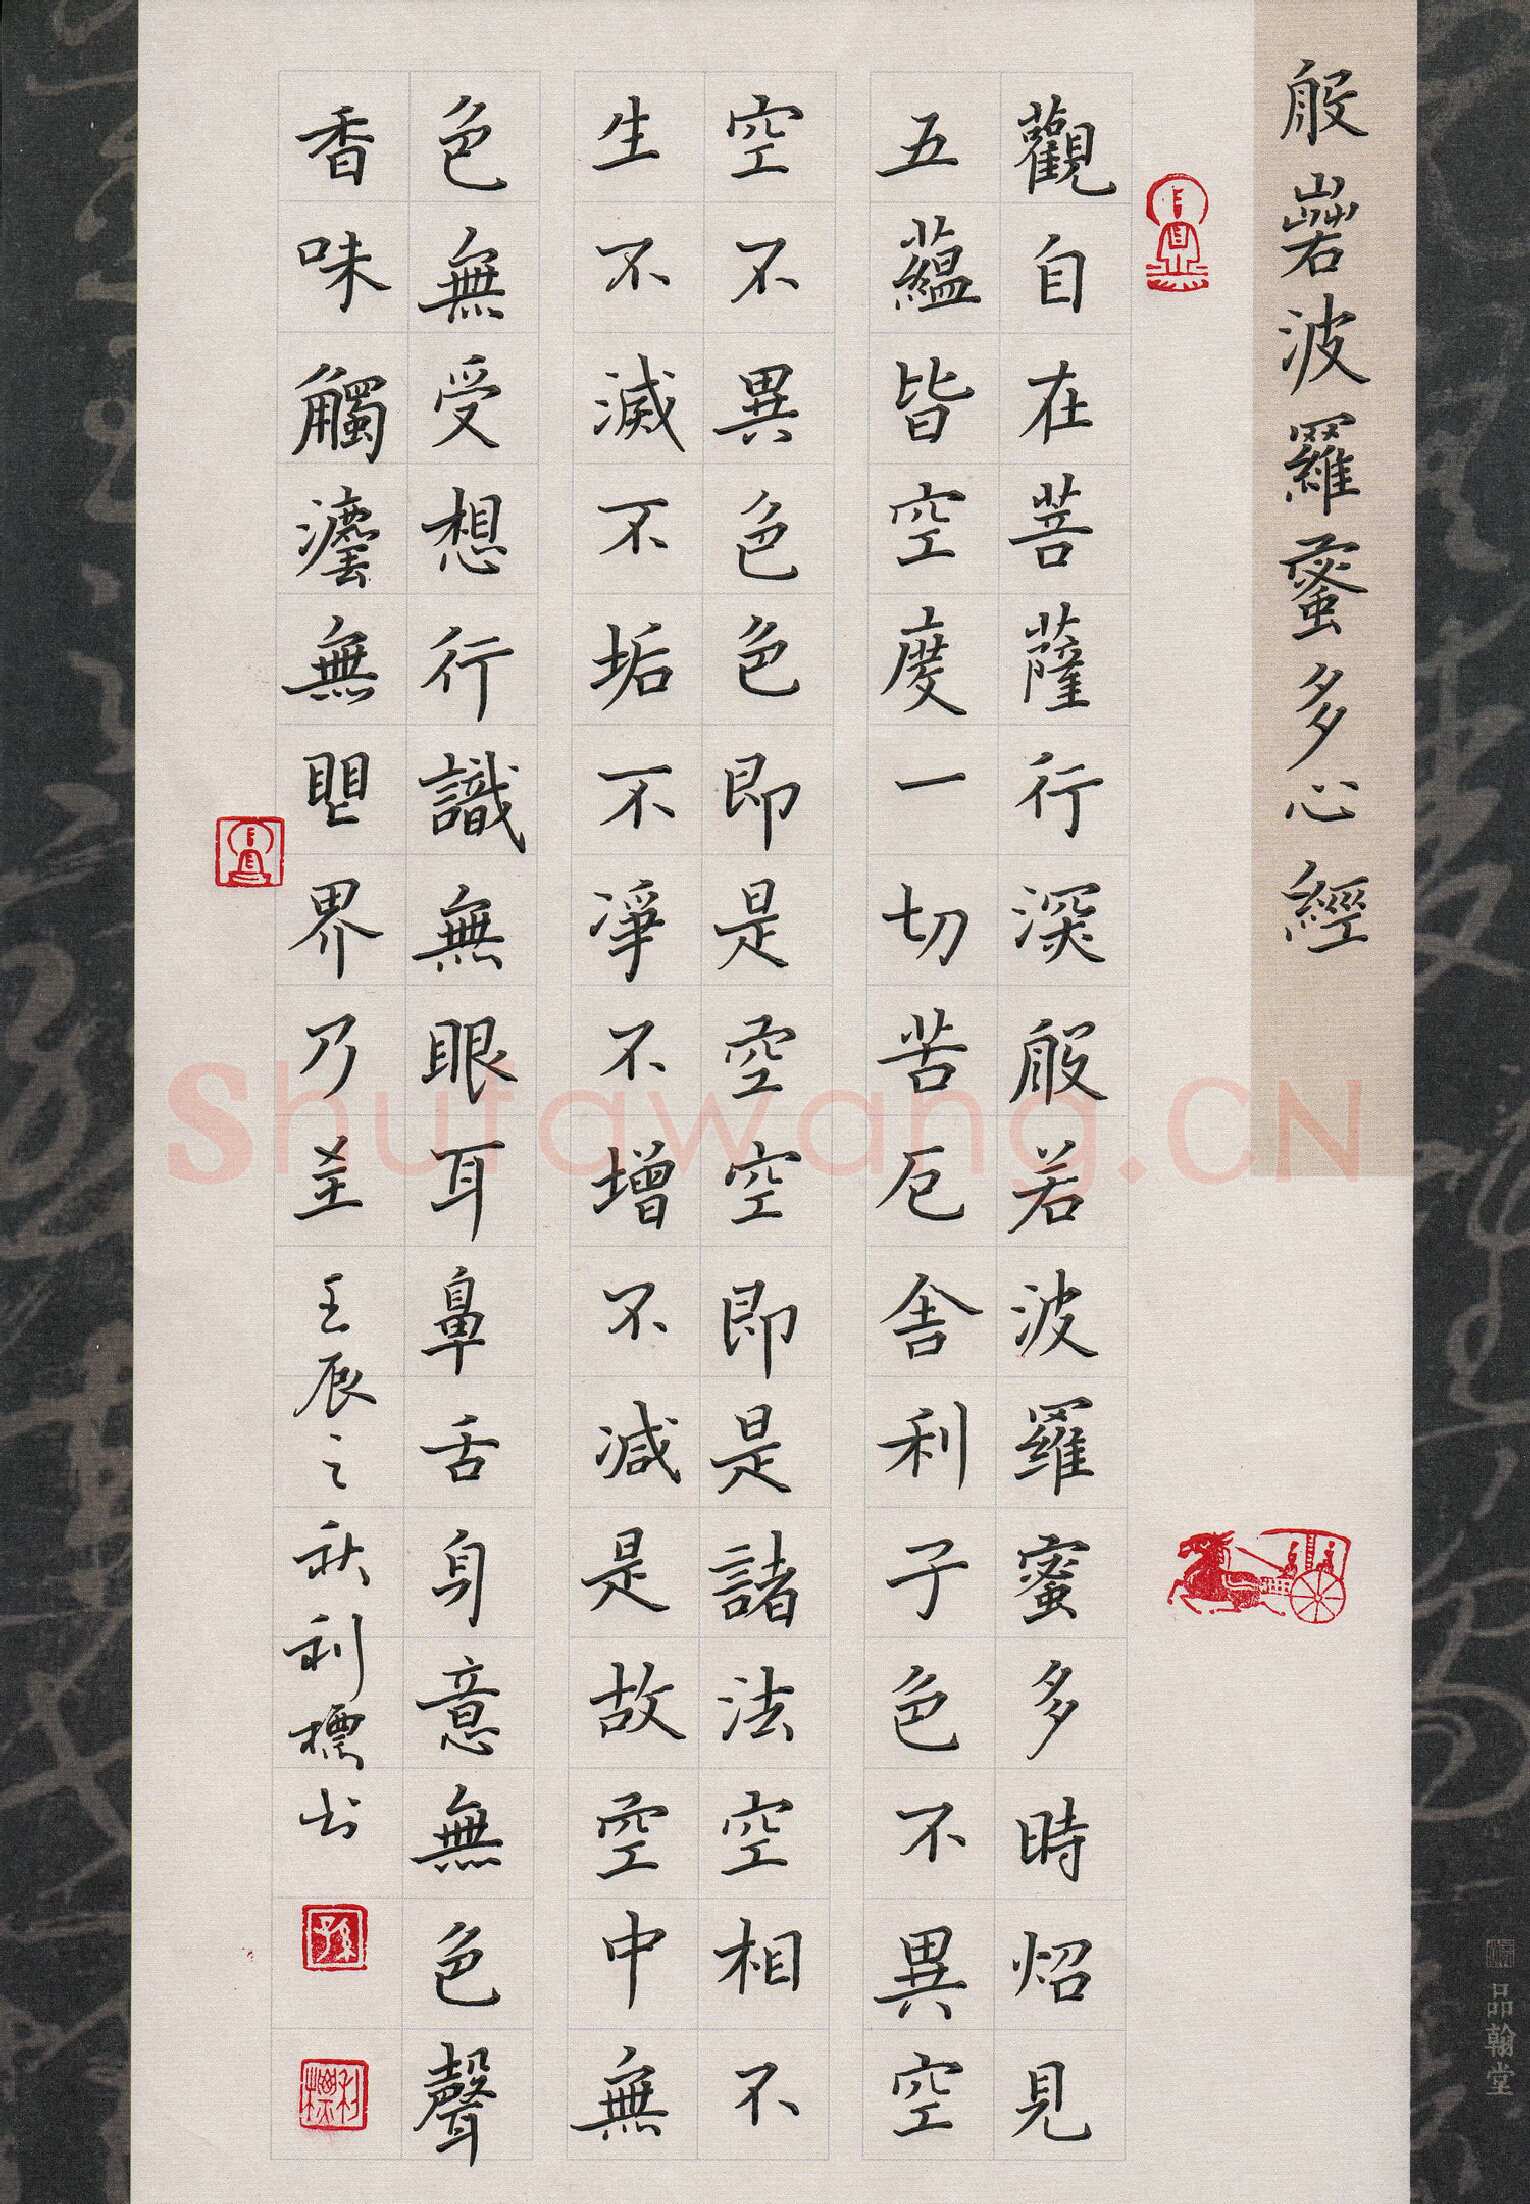 般若波羅蜜多心經
觀自在菩薩行深般若波羅蜜多時炤見
五蘊皆空度一切苦厄舍利子色不異空
空不異色色即是空空即是諸法空相不
生不滅不垢不淨不增不減是故空中無
色無受想行識無眼耳鼻舌身意無色聲
香味觸灋無眼界乃至壬辰之秋利標书
孫
利標
品翰堂
Shufawang.CN